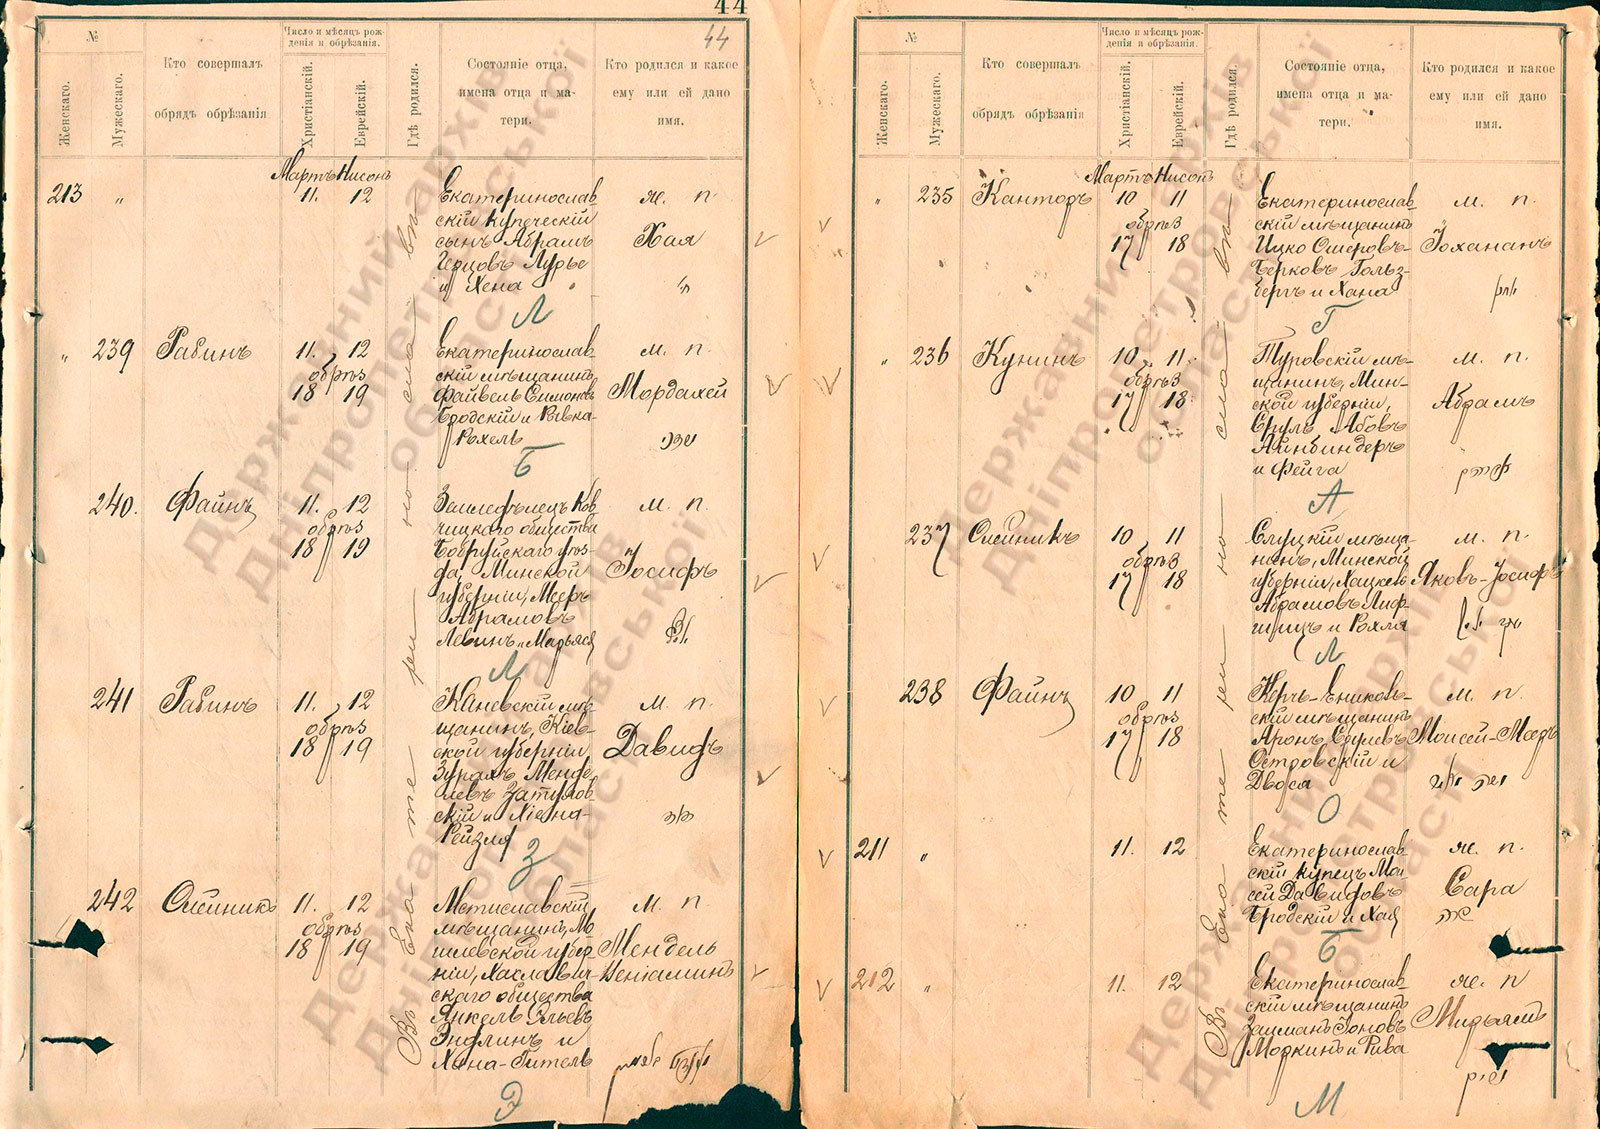 44
44
№
Женскаго.
Мужескаго.
Кто совершалъ
обрядъ обрѣзанія
Число и мѣсяцъ рож-
денія и обрѣзанія.
Христіанскій.
Еврейскій.
Гдѣ родился.
Состояніе отца,
имена отца и ма-
тери.
Кто родился и какое
ему или ей дано
имя.
Мартъ Нисонъ
213 „ 11. 12
Екатеринослав-
скій купеческій
сынъ Абрамъ
Герцовъ Лурье
и Хена
ж. п.
Хая
Л
„ 239 Рабинъ 11. 12
обрѣз
18 19
Екатеринослав-
скій мѣщанинъ
Файвель Симоновъ
Бродскій и Ривка-
Рохель
м. п.
Мордахей
Б
240. Файнъ 11. 12
обрѣз
18 19
Земледѣлецъ Ков-
чицкаго общества
Бобруйскаго уѣз-
да, Минской
губерніи, Меер
Абрамовъ
Левинъ и Марьяся
м. п.
Іосифъ
Л
241 Рабинъ 11. 12
обрѣз
18 19
Каневскій мѣ-
щанинъ, Кіев-
ской губерніи
Зурахъ Менде-
левъ Затулов-
скій и
Рейзля
м. п.
Давидъ
З
242 Олейникъ 11. 12
обрѣз
18 19
Мстиславскій
мѣщанинъ, Мо-
гилевской губер-
ніи, Хаславич-
скаго общества
Янкель Эльевъ
Эндлинъ и
Хана-Гитель
м. п
Мендель
Веніаминъ
Э
Въ Екатеринославѣ
№
Женскаго.
Мужескаго.
Кто совершалъ
обрядъ обрѣзанія
Число и мѣсяцъ рож-
денія и обрѣзанія.
Христіанскій.
Еврейскій.
Гдѣ родился.
Состояніе отца,
имена отца и ма-
тери.
Кто родился и какое
ему или ей дано
имя.
Мартъ Нисонъ
„ 235 Канторъ 10 11
обрѣз
17 18
Екатеринослав-
скій мѣщанинъ
Ицко Ошеровъ-
Берковъ Гольд-
бергъ и Хана
м. п.
Іохананъ
Г
„ 236 Кунинъ 10 11.
обрѣз
17 18
Туровскій мѣ-
щанинъ, Мин-
ской губерніи,
Сруль Абовъ
Айнбиндеръ
и Фейга
м. п.
Абрамъ
А
237 Олейникъ 10 11
обрѣз
17 18
Слуцкій мѣща-
нинъ, Минской
губерніи, Хацкель
Абрамовъ Лиф-
шицъ и Рохля
м. п.
Яковъ-Іосифъ
Л
238 Файнъ 10 11
обрѣз
17 18
Керчь-Ениколь-
скій мѣщанинъ
Аронъ Срулевъ
Островскій и
Двося
м. п.
Моисей-Меер
О
211 „ 11. 12
Екатеринослав-
скій купецъ Мои-
сей Давидовъ
Бродскій и Хая
ж. п.
Сара
Б
212 „ 11. 12
Екатеринослав-
скій мѣщанинъ
Залманъ Іоновъ
Моркинъ и Рива
ж. п
Мирьямъ
М
Въ Екатеринославѣ
Державний архів
Дніпропетровської
області